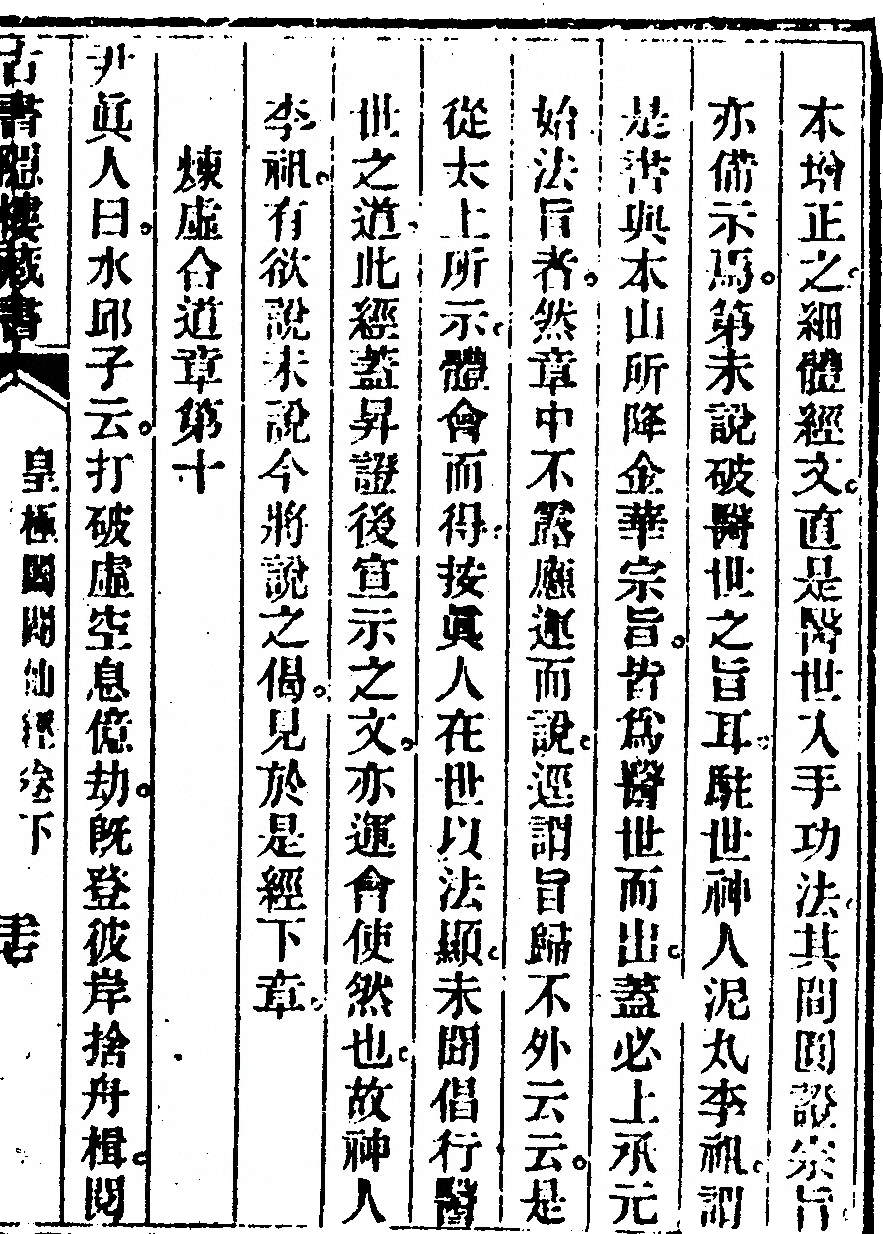 本增正之細體經文。直是醫世入手功法。其間圓證宗旨。
亦備示焉。第未說破醫世之旨耳。駐世神人泥丸李祖。謂
是書與本山所降金華宗旨。皆爲醫世而出。蓋必上承元
始法旨者。然章中不露應運而說。逕謂旨歸不外云云。是
從太上所示。體會而得。按眞人在世以法顯。未聞倡行醫
世之道。此經蓋昇證後宣示之文。亦運會使然也。故神人
李祖。有欲說未說今將說之偈。見於是經下章。
煉虛合道章第十
尹眞人曰。水邱子云。打破虛空息億劫。旣登彼岸捨舟楫。閱
古書隱樓藏書
皇極闔闢仙經卷下